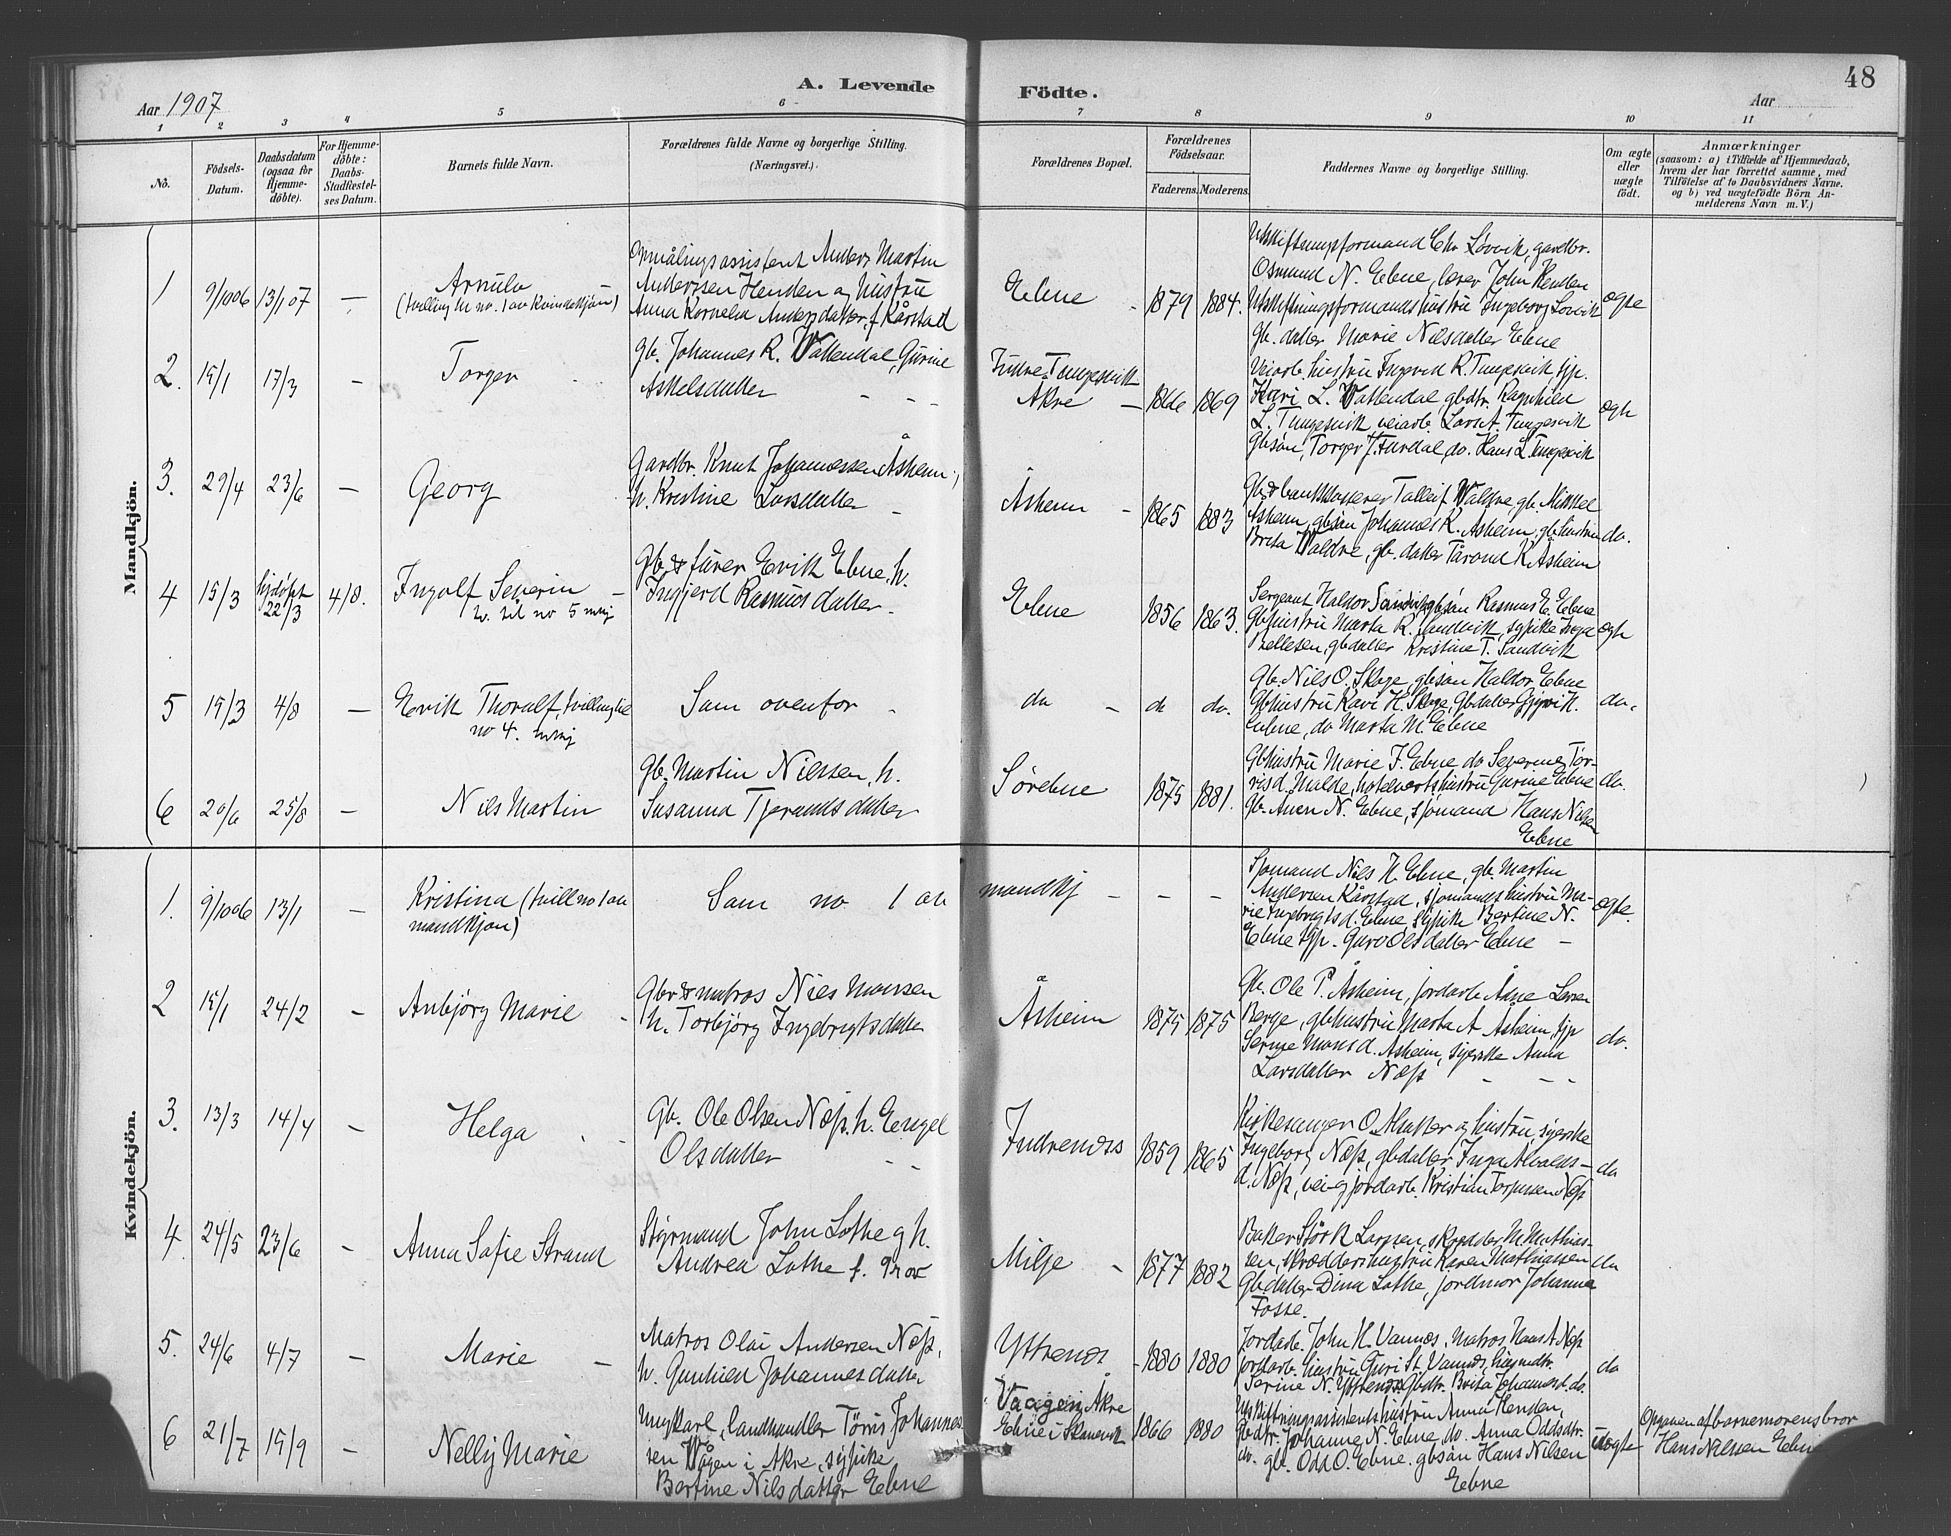 48
A. Levende Födte.
Aar 1907
Aar
1 2 3 4 5 6 7 8 9 10 11
No.
Födsels-Datum.
Daabsdatum (ogsaa for Hjemme-döbte).
For Hjemme-döbte: Daabs-Stadfæstel-ses Datum.
Barnets fulde Navn.
Forældrenes fulde Navne og borgerlige Stilling.
(Næringsvei.)
Forældrenes Bopæl.
Forældrenes Födselsaar.
Faderens. Moderens.
Faddernes Navne og borgerlige Stilling.
Om ægte eller uægte födt.
Anmærkninger
(saasom: a) i Tilfælde af Hjemmedaab,
hvem der har forrettet samme, med
Tilföielse af to Daabsvidners Navne.
og b) ved uægtefödte Börn An-
melderens Navn m. V.)
Mandkjön.
1 9/10 06 13/1 07 —
Arnulv
(tvilling til no. 1 av kvindekjøn)
Opmålingsassistent Anders Martin
Anderssen Henden og hustru
Anna Kornelia Andersdatter, f. Kårstad
Ebne 1879 1884.
Utskiftningsformand Chr Løvvik, gardbr.
Osmund N. Ebne, lærer John Henden
Utskiftningsformands hustru Ingeborg Løvvik
Gb. datter Marie Nilsdatter Ebne
ægte
2. 15/1 17/3 —
Torger
Gb. Johannes R. Vattendal, Gurine
Askelsdatter
Indre Tungesvik
Åkre — 1866 1869
Veiarb. hustru Ingerid R. Tungesvik, tjp.
Kari L. Vattendal, gbdtr. Ragnhild
L. Tungesvik veiarb. Lars A. Tungesvik
Gbsön, Torger J. Furdal, do. Hans L. Tungesvik
ægte
3. 29/4 23/6 —
Georg
Gardbr. Knut Johannessen Åsheim,
h. Kristine Larsdatter
Åsheim 1865 1883
Gb. & bankkasserer Talleif Valdre, gb. Mikkel
Åsheim, gbsön Johannes K. Åsheim, gbhustru
Brita Valdre, gb. datter Tårond K. Åsheim
do.
4 15/3 hjdøpt 22/3 4/8.
Ingolf Severin
tv. til no 5 mkj
Gb. & furer Erik Ebne, h.
Ingjerd Rasmusdatter
Ebne 1856 1863.
Sergeant Haldor Sandvik, gbsön Rasmus E. Ebne
Gbhustru Marta R. Sandvik, sypike Inga
Tellesen, gbdatter Kristine T. Sandvik
ægte
5 15/3 4/8 —
Erik Thoralf, tvilling til
no 4. mkj
Sam ovenfor
do do do.
Gb. Nils O. Skoge, gbsön Haldor Ebne
Gbhustru Kari H. Skoge, Gbdatter
Ebne, do Marta M. Ebne
do.
6 20/6 25/8 —
Nils Martin
Gb. Martin Nilssen, h.
Susanna Tjerandsdatter
Sørebne 1875 1881.
Gbhustru Marie J. Ebne do Severine Tør-
risd. Malde, hotelvertshustru Gurine Ebne
Gb. Amon N. Ebne, sjömand Hans Nilsen
Ebne
do.
Kvindekjön.
1. 9/10 06 13/1 —
Kristina (tvill no 1 av
mandkjøn)
Sam no 1 av mandkj — — —
Sjömand Nils H. Ebne, gb. Martin
Andersen Kårstad, sjömands hustru Ma-
rie Ingebrigtsd. Ebne, sypike Bertine N.
Ebne tjp. Guro Olsdatter Ebne —
ægte.
2 15/1 24/2 —
Anbjørg Marie
Gbr & matros Nils Monsen
h. Torbjörg Ingebrigtsdatter
Åsheim 1875 1875
Gb. Ole P. Åsheim, jordarb. Åsne Larsen
Berge, gbhustru Marta A Åsheim, tjp
Serine Monsd. Åsheim, syerske Anna
Larsdatter Næss
do.
3. 13/3 14/4 —
Helga
Gb. Ole Olsen Næss. h. Engel
Olsdatter
Indrenæs 1859 1865
Kirkesanger O. Mutter og hustru, syerske
Ingeborg Næss, gbdatter Inga Alvalds-
d. Næss, vei- og jordarb. Kristian Torgersen Næss
do
4. 24/5 23/6 —
Anna Sofie Strand
Styrmand John Lothe og h.
Andrea Lothe f. Prov
Milje 1877 1882
Baker Störk Larsen, skrædder M. Mathias-
sen, skrædderhustru Karen Mathiassen
Gbdatter Dina Lothe, jordmor Johanna
Fosse.
do
5. 24/6 4/7 —
Marie
Matros Olai Andersen Næss,
h. Gunhild Johannesdatter
Yttrenæs 1880 1880
Jordarb. John H. Vannes, matros Hans A Næss
jordarb. hustru Guri St. Vannes,
Serine N. Yttrenæs Gbdtr. Brita Johannesd. do.
do
6 21/7 15/9 —
Nelly Marie
Ungkarl, landhandler Tørris Johannes-
sen Vågen i Åkre, sypike
Bertine Nilsdatter Ebne
Vaagen i Åkre
Ebne i Skånevik 1866 1880
Utskiftningsassistents hustru Anna Henden,
Gbdtr. Johanne N. Ebne, do. Anna Oddsdtr.
do. gb. Odd O. Ebne. gbsön Hans Nilsen
Ebne
Uægte
Opgaven af barnemorens bror
Hans Nilssen Ebne